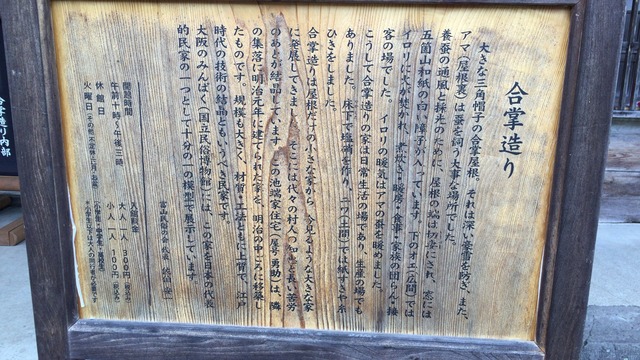 合掌造り
大きな三角帽子の合掌屋根。それは深い豪雪を防ぎ、また、
アマ（屋根裏）は蚕を飼う大事な場所でした。
養蚕の通風と採光のために、屋根の端は
にされ、窓には
五箇山和紙の白い障子が入っています。下のオエ（広間）では
イロリに火が焚かれ、煮炊き・暖房・食事・家族の団らん・接
客の場でした。イロリの暖気はアマの蚕を暖めました。
こうして合掌造りの家は日常生活の場であり、生産の場でも
ありました。床下で塩硝を作り、ニワ（土間）では紙すきや糸
ひきをしました。
合掌造りは屋根だけの小さな家から、今見るような大きな家
に発展してきました。そこには代々の村人の知恵と長い苦労
のあとが結晶しています。この池端家住宅（屋号勇助）は、隣
の集落に明治元年に建てられた家を、明治の中ごろに移築し
たものです。規模も大きく、材質・工法ともに上質で、江戸
時代の技術の結晶ともいうべき民家です。
大阪のみんぱく（国立民俗博物館）には、この家を日本の代表
的民家の一つとして十分の一の模型で展示しています。
開館時間
午前十時～午後三時
休館日
火曜日
入館料金
大人一人 300円（税込み）
小人一人 100円（税込み）
合掌造り内部